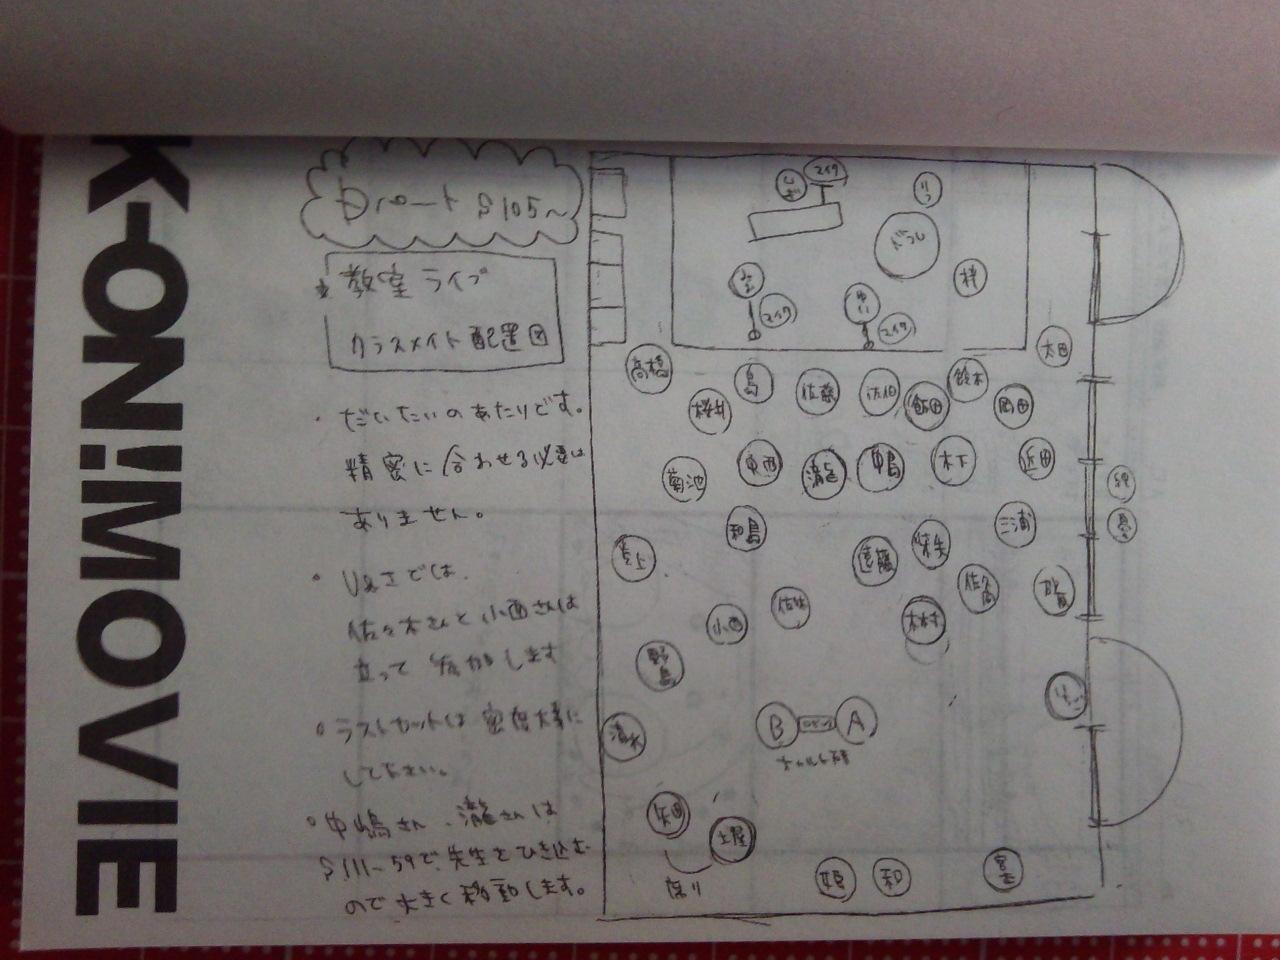 K-ON! MOVIE
Dパート S105〜
教室ライブ
クラスメイト配置図
・だいたいのあたりです。
精密に合わせる必要は
ありません。
佐々木さんと小西さんは
立って参加します
・ラストカットは密度大事に
して下さい。
・中嶋さん、瀧さんは
S111-59で、先生をひき込む
ので大きく移動します。
マイク
りつ
梓
マイク
ゆい
マイク
太田
高橋
桜井
島
佐藤
佐伯
飯田
鈴木
岡田
菊池
東西
瀧
中嶋
木下
近田
和嶋
遠藤
三浦
憂
佐久間
小西
木村
野島
清水
B
A
矢田
土屋
姫
和
座り